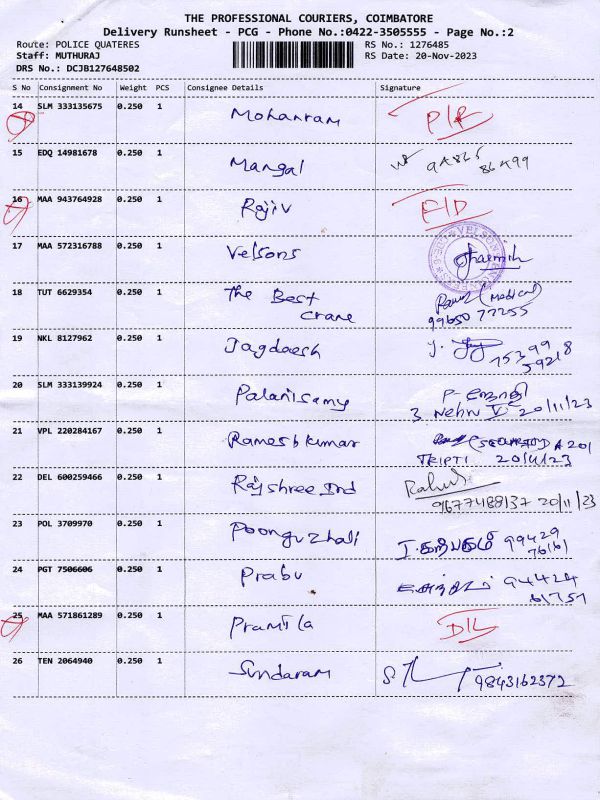 THE PROFESSIONAL COURIERS, COIMBATORE
Delivery Runsheet - PCG - Phone No.:0422-3505555 - Page No.:2
Route: POLICE QUATERES RS No.: 1276485
Staff: MUTHURAJ RS Date: 20-Nov-2023
DRS No.: DCJB127648502
S No Consignment No Weight PCS Consignee Details Signature
14 SLM 333135675 0.250 1 Mohanram
15 EDQ 14981678 0.250 1 Mangal 94865
86499
16 MAA 943764928 0.250 1 Rajiv
17 MAA 572316788 0.250 1 Velsons
18 TUT 6629354 0.250 1 The Best (Medical)
Crane 99650 77255
19 NKL 8127962 0.250 1 Jagdeesh J. 75399
59218
20 SLM 333139924 0.250 1 Palanisamy P-
3 Nehru 20/11/23
21 VPL 220284167 0.250 1 Rameshkumar A 201
TRIPTI 20/11/23
22 DEL 600259466 0.250 1 Rajshree Ind Rahul
9677488137 20/11/23
23 POL 3709970 0.250 1 Poonguzhali 99429
76161
24 PGT 7506606 0.250 1 Prabu 94424
61757
25 MAA 571861289 0.250 1 Pramila D/L
26 TEN 2064940 0.250 1 Sundaram 9843162372